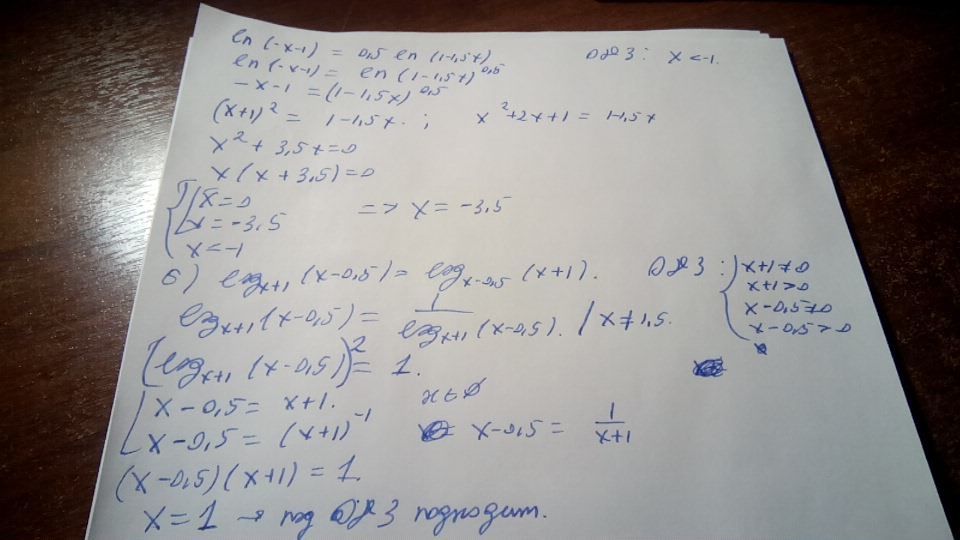 ln (-x-1) = 0,5 ln (1-1,5x) ОДЗ: x < -1.
ln (-x-1) = ln (1-1,5x)^0,5
-x-1 = (1-1,5x)^0,5
(x+1)^2 = 1-1,5x. ; x^2+2x+1 = 1-1,5x
x^2 + 3,5x = 0
x(x+3,5) = 0
x = 0
x = -3,5 => x = -3,5
x < -1
б) log_{x+1} (x-0,5) = log_{x-0,5} (x+1). ОДЗ: x+1 ≠ 0
x+1 > 0
x-0,5 ≠ 0
x-0,5 > 0
log_{x+1} (x-0,5) = 1 / log_{x+1} (x-0,5). / x ≠ 1,5.
(log_{x+1} (x-0,5))^2 = 1.
x-0,5 = x+1. x ∈ ∅
x-0,5 = (x+1)^-1 x-0,5 = 1/(x+1)
(x-0,5)(x+1) = 1.
x = 1 → под ОДЗ подходит.